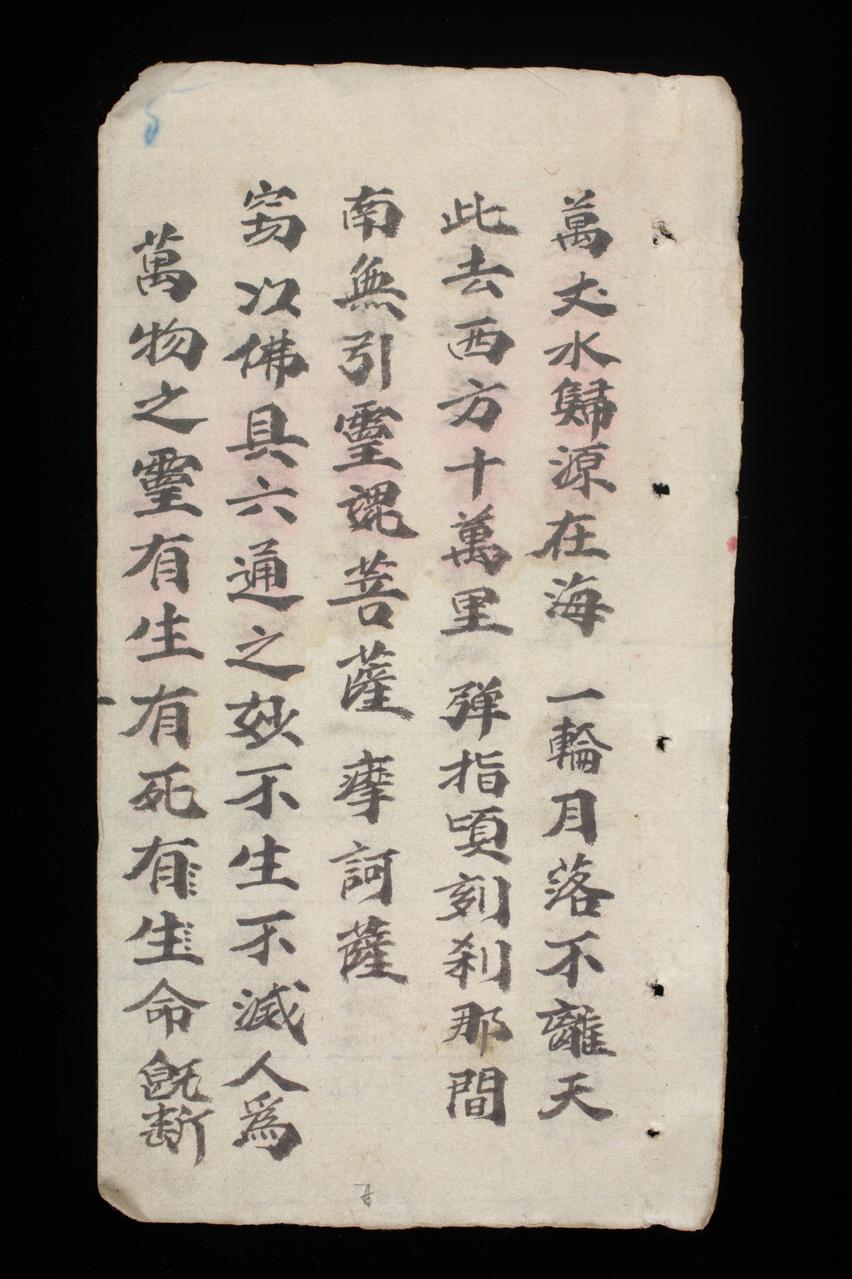 萬丈水歸源在海 一輪月落不離天
此去西方十萬里 弹指頃刻刹那間
南無引靈魂菩薩 摩訶薩
窃以佛具六通之妙不生不滅人爲
萬物之靈有生有死有生命既断
5